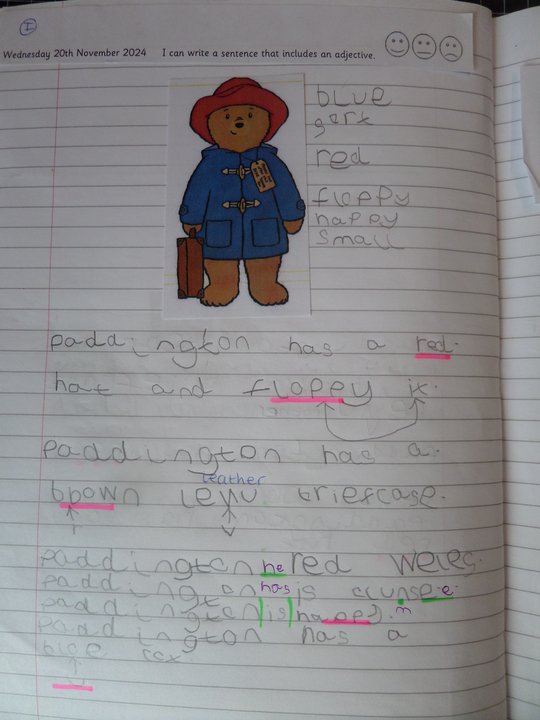 I
Wednesday 20th November 2024 I can write a sentence that includes an adjective.
blue
red
floppy
happy
small
paddington has a red.
hat and floppy it.
paddington has a.
leather
brown briefcase.
paddington he red
paddington has is
paddington is happy.
paddington has a